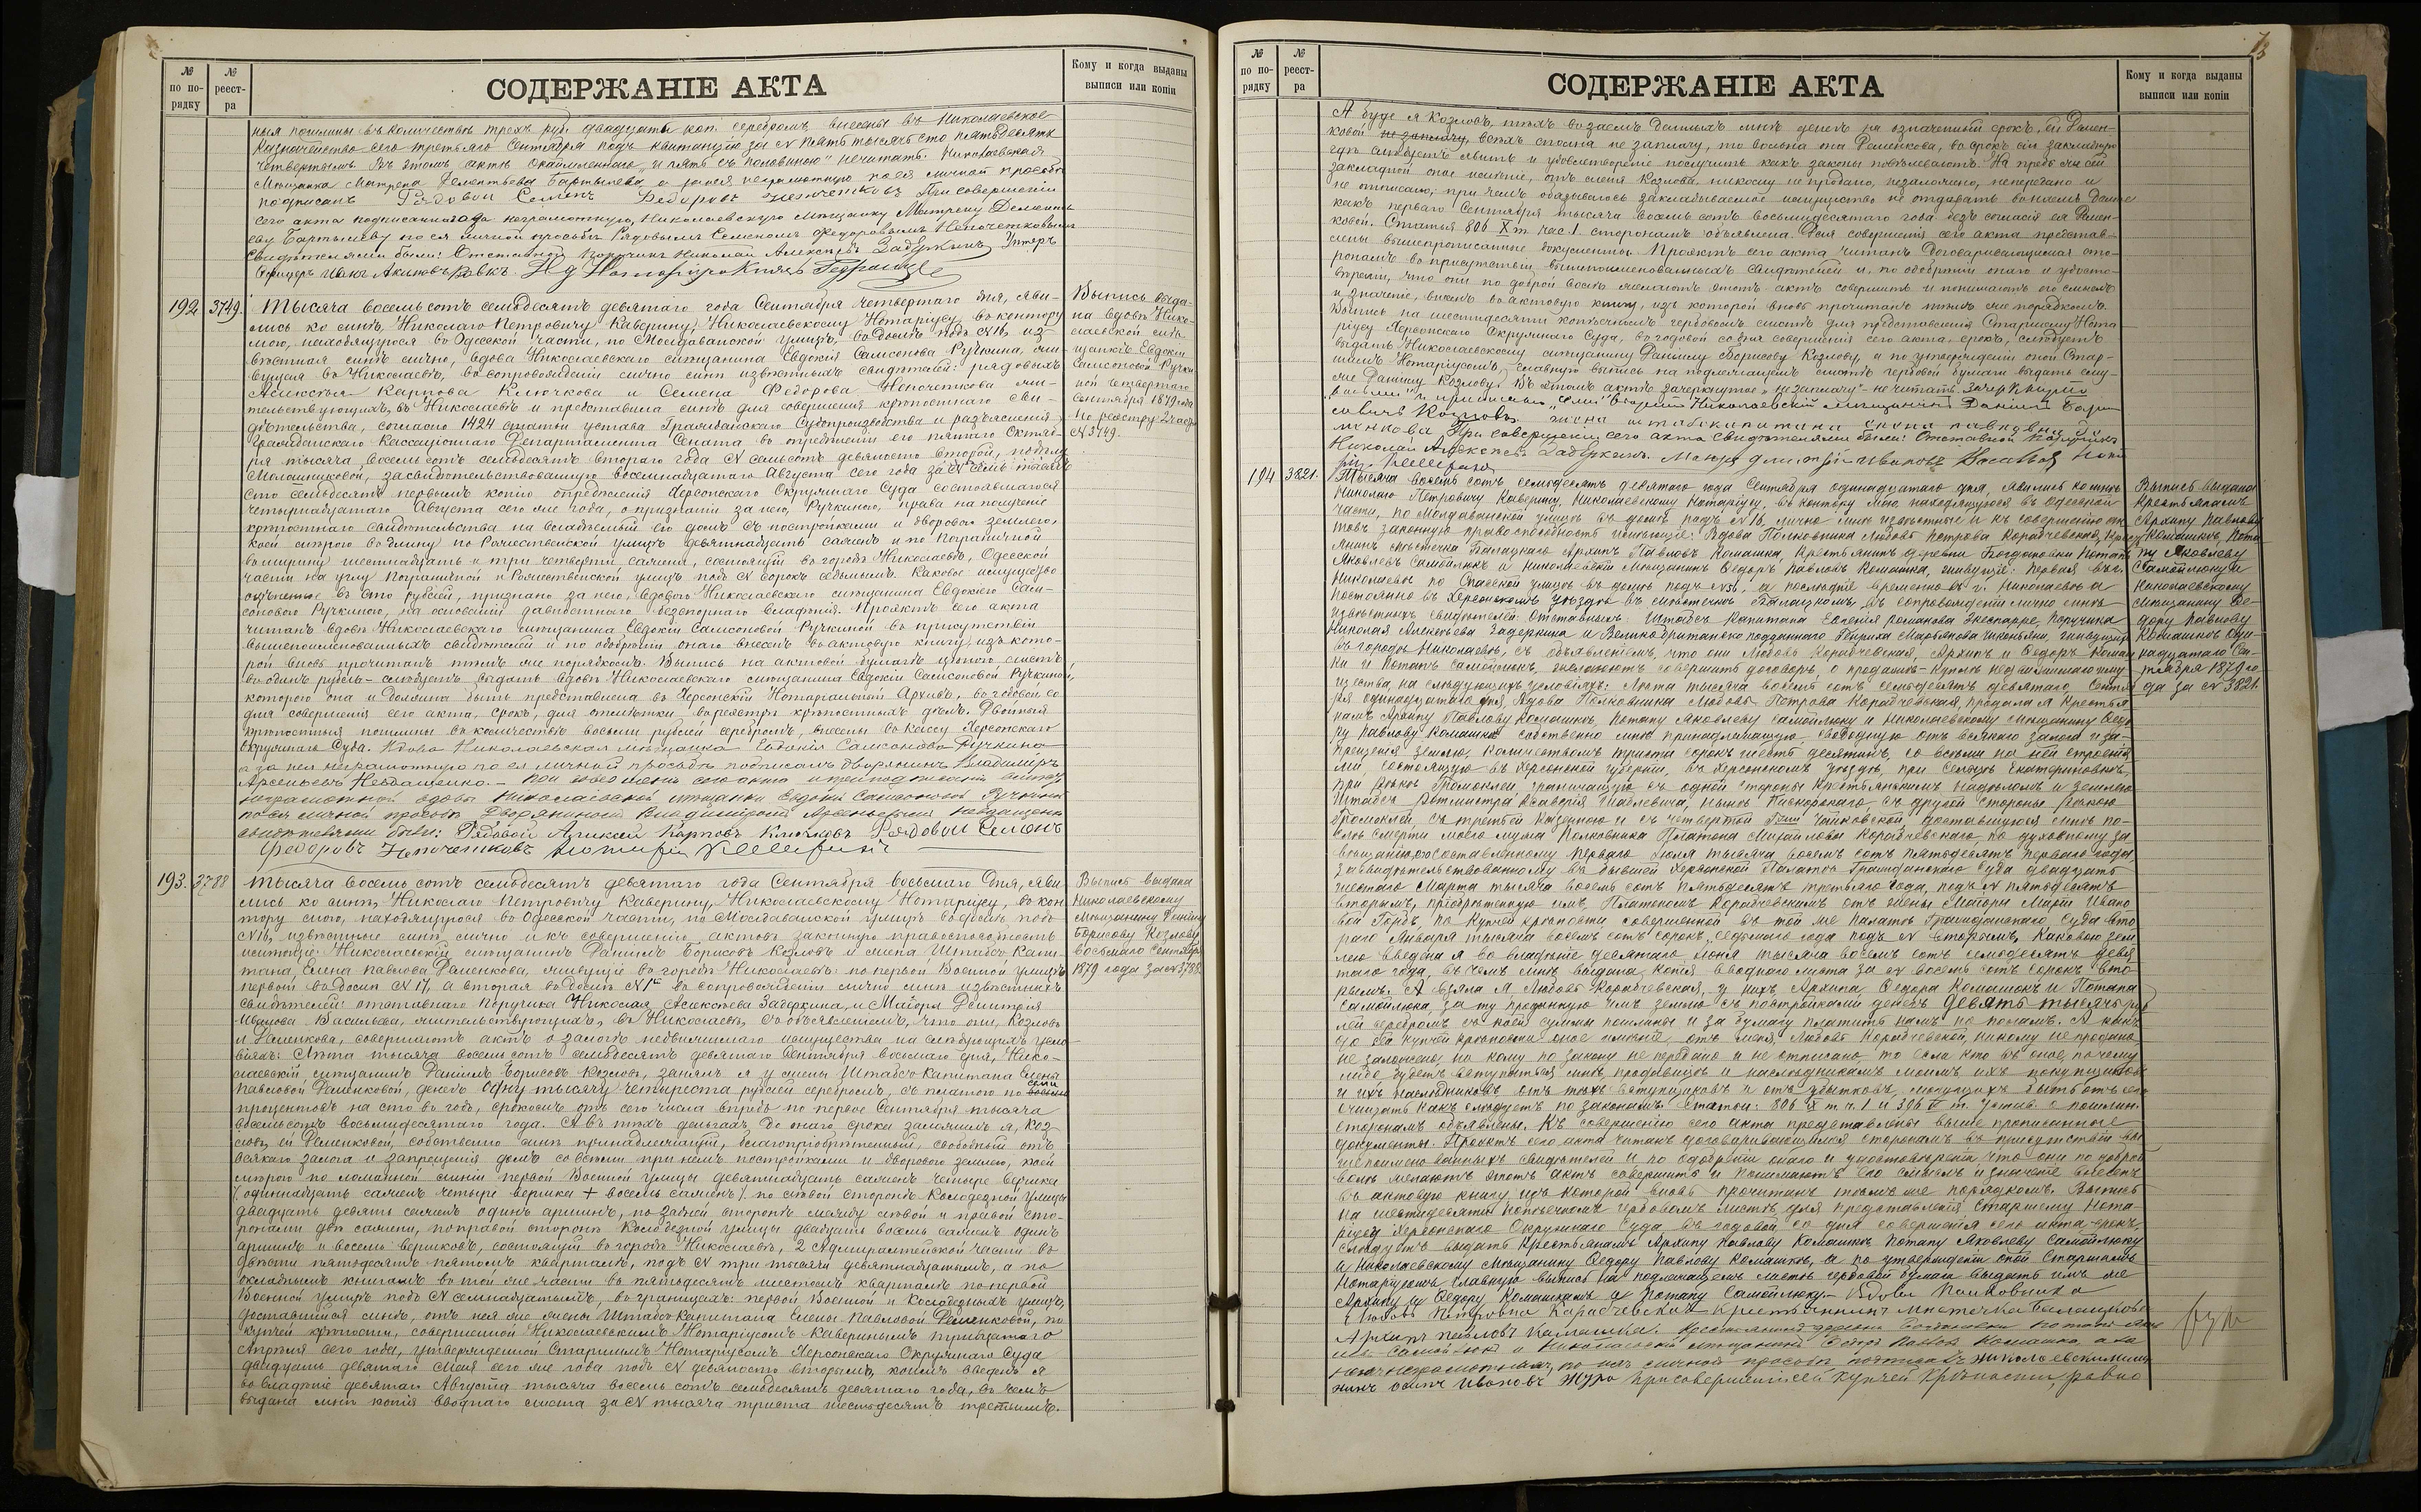 № по по-рядку
№ реестра
СОДЕРЖАНІЕ АКТА
Кому и когда выданы выписи или копіи
ныя пошлины въ количествѣ трехъ руб. двадцати коп. серебромъ внесены въ Николаевское
Казначейство сего третьяго Сентября подъ квитанціею за № пять тысячъ сто пятьдесятъ
четвертымъ. Въ этомъ актѣ окаймленнаго „и пять съ половиною" нечитать. Николаевская
Мѣщанка Матрена Дементьева Бартышева а за нея неграмотную по ея личной просьбѣ
подписалъ Рядовой Семенъ Федоровъ Непочетковъ При совершеніи
сего акта подписался за неграмотную, Николаевскую Мѣщанку Матрену Дементь
еву Бартышеву по ея личной просьбѣ Рядовымъ Семеномъ Федоровымъ Непочетковымъ
Свидѣтелями были: Отставной Поручикъ Николай Алексѣевъ Задеркинъ Унтеръ
Офицеръ Иванъ Акимовъ
192 3749. Тысяча восемьсотъ семьдесятъ девятаго года Сентября четвертаго дня, яви-
лись ко мнѣ, Николаю Петровичу Каверину, Николаевскому Нотаріусу, въ контору
мою, находящуюся во Одесской части, по Молдаванской улицѣ, въ домѣ подъ №16, из-
вѣстная мнѣ лично, вдова Николаевскаго мѣщанина Евдокія Самсонова Ручкина, жи-
вущая въ Николаевѣ, въ сопровожденіи лично мнѣ извѣстныхъ свидѣтелей: рядовыхъ
Алексѣя Карпова Клочкова и Семена Федорова Непочеткова жи-
тельствующихъ, въ Николаевѣ и представила мнѣ для совершенія крѣпостнаго сви-
дѣтельства, согласно 1424 статьи устава Гражданскаго Судопроизводства и разъясненія
Гражданскаго Кассаціоннаго Департамента Сената во опредѣленіи его пятаго Октяб-
ря тысяча восемьсотъ семьдесятъ втораго года № семьсотъ девяносто второй, по дѣлу
Молошниковой, засвидѣтельствованную восемнадцатаго Августа сего года за № семь тысячъ
сто семьдесятъ первымъ копію опредѣленія Херсонскаго Окружнаго Суда состоявшагося
четырнадцатаго Августа сего же года, о признаніи за нею, Ручкиною, права на полученіе
крѣпостнаго свидѣтельства на владѣемый ею домъ съ постройками и дворовою землею,
коей мѣрою въ длину по Рожественской улицѣ девятнадцать саженъ и по Пограничной
въ ширину шестнадцать и три четверти сажени, состоящій въ городѣ Николаевѣ, Одесской
части на углу Пограничной и Рожественской улицъ подъ № сорокъ седьмымъ. Каковое имущество
оцѣненное въ сто рублей, признано за нею, вдовою Николаевскаго мѣщанина Евдокіею Сам-
соновою Ручкиною, на основаніи давностнаго безспорнаго владѣнія. Проэктъ сего акта
читанъ вдовѣ Николаевскаго мѣщанина Евдокіи Самсоновой Ручкиной въ присутствіи
вышепоименованныхъ свидѣтелей и по одобреніи онаго внесенъ въ актовую книгу, изъ кото-
рой вновь прочитанъ тѣмъ же порядкомъ. Выпись на актовой бумагѣ цѣною, листъ,
въ одинъ рубль – слѣдуетъ выдать вдовѣ Николаевскаго мѣщанина Евдокіи Самсоновой Ручкиной,
которою она и должна быть представлена въ Херсонскій Нотаріальный Архивъ, въ годовой, со
дня совершенія сего акта, срокъ, для отмѣтки въ реестрѣ крѣпостныхъ дѣлъ. Двойныя
крѣпостныя пошлины въ количествѣ восьми рублей серебромъ, внесены въ кассу Херсонскаго
Окружнаго Суда. Вдова Николаевская мѣщанка Евдокія Самсонова Ручкина
а за нея неграмотную по ея личной просьбѣ подписалъ дворянинъ Владимиръ
Арсеньевъ Невдащенко. – При совершеніи сего акта и при подписаніи вмѣсто
неграмотной вдовы Николаевской мѣщанки Евдокіи Самсоновой Ручкиной
по ея личной просьбѣ Дворяниномъ Владиміромъ Арсеньевымъ Невдащенко
свидѣтелями были: Рядовой Алексѣй Карповъ Клочковъ Рядовой Семенъ
Федоровъ Непочетковъ Нотаріусъ
Выпись выда-
на вдовѣ Нико-
лаевской мѣ-
щанкѣ Евдокіи
Самсоновой Ручки
ной четвертаго
Сентября 1879 года
По реестру
№3749.
193. 3788 Тысяча восемьсотъ семьдесятъ девятаго года Сентября восьмаго дня, яви
лись ко мнѣ, Николаю Петровичу Каверину, Николаевскому Нотаріусу, въ кон
тору мою, находящуюся во Одесской части, по Молдаванской улицѣ въ домѣ подъ
№16, извѣстные мнѣ лично и къ совершенію актовъ законную правоспособность
имѣющіе: Николаевскій мѣщанинъ Даніилъ Борисовъ Козловъ и жена Штабсъ-Капи-
тана, Елена Павлова Раменкова, живущіе въ городѣ Николаевѣ: по первой Военной улицѣ
первый въ домѣ №17, а вторая въ домѣ №1й въ сопровожденіи лично мнѣ извѣстныхъ
свидѣтелей: отставнаго Поручика Николая Алексѣева Задеркина, и Майора Дмитрія
Иванова Васильева, жительствующихъ, въ Николаевѣ, съ объявленіемъ, что они, Козловъ
и Раменкова, совершаютъ актъ о залогѣ недвижимаго имущества на слѣдующихъ усло
віяхъ: Лѣта тысяча восемьсотъ семьдесятъ девятаго Сентября восьмаго дня, Нико-
лаевскій мѣщанинъ Даніилъ Борисовъ Козловъ, занялъ я у жены Штабсъ-Капитана Елены
Павловой Раменковой, денегъ одну тысячу четыреста рублей серебромъ, съ платою по восьми семи
процентовъ на сто въ годъ, срокомъ отъ сего числа впредь по первое Сентября тысяча
восемьсотъ восьмидесятаго года. А въ тѣхъ деньгахъ, до онаго срока заложилъ я, Коз
ловъ, ей Раменковой, собственно мнѣ принадлежащій, благопріобрѣтенный, свободный отъ
всякаго залога и запрещенія домъ со всѣми при немъ постройками и дворовою землею, коей
мѣрою по ломанной линіи первой Военной улицы девятнадцать саженъ четыре вершка
(одиннадцать саженъ четыре вершка + восемь саженъ) по лѣвой сторонѣ Колодезной улицы
двадцать девять саженъ одинъ аршинъ, по задней сторонѣ между лѣвой и правой сто-
ронами двѣ сажени, по правой сторонѣ Колодезной улицы двадцать восемь саженъ одинъ
аршинъ и восемь вершковъ, состоящій въ городѣ Николаевѣ, 2 Адмиралтейской части въ
двѣсти пятьдесятъ пятомъ кварталѣ, подъ № три тысячи девятнадцатымъ, а по
окладнымъ книгамъ въ той же части въ пятьдесятъ шестомъ кварталѣ по первой
Военной улицѣ подъ № семнадцатымъ, въ границахъ: первой Военной и Колодезныхъ улицъ,
доставшійся мнѣ, отъ нея же жены Штабсъ-Капитана Елены Павловой Раменковой, по
купчей крѣпости, совершенной Николаевскимъ Нотаріусомъ Каверинымъ тридцатаго
Апрѣля сего года, утвержденной Старшимъ Нотаріусомъ Херсонскаго Окружнаго Суда
двадцать девятаго Мая сего же года подъ № девяносто вторымъ, коимъ введенъ я
во владѣніе девятаго Августа тысяча восемь сотъ семьдесятъ девятаго года, въ чемъ
выдана мнѣ копія вводнаго листа за № тысяча триста шестьдесятъ третьимъ.
Выпись выдана
Николаевскому
Мѣщанину Данилу
Борисову Козлову
восьмаго Сентября
1879 года за №3788.
№ по по-рядку
№ реестра
СОДЕРЖАНІЕ АКТА
Кому и когда выданы выписи или копіи
А буде я Козловъ, тѣхъ взаемъ данныхъ мнѣ денегъ на означенный срокъ, ей Рамен-
ковой не заплачу, всѣхъ сполна не заплачу, то вольна она Раменкова, въ срокъ сію закладную
гдѣ слѣдуетъ явить и удовлетвореніе получить какъ законы повелѣваютъ. На предь же сей
закладной оное имѣніе, отъ меня Козлова, никому не продано, незаложено, непередано и
не отписано; при чемъ обязываюсь закладываемое имущество не отдавать въ наемъ далѣе
какъ перваго Сентября тысяча восемь сотъ восьмидесятаго года безъ согласія ея Рамен-
ковой. Статья 806 X т. час. 1 сторонамъ объявлена. Для совершенія сего акта представ-
лены вышепрописанные документы. Проэктъ сего акта читанъ Договаривающимся сто-
ронамъ въ присутствіи вышепоименованныхъ свидѣтелей и, по одобреніи онаго и удосто-
вѣреніи, что они по доброй волѣ желаютъ этотъ актъ совершить и понимаютъ его смыслъ
и значеніе, внесенъ въ актовую книгу, изъ которой вновь прочитанъ тѣмъ же порядкомъ.
Выпись на шестидесяти копѣечномъ гербовомъ листѣ для представленія Старшему Нота
ріусу Херсонскаго Окружнаго Суда, въ годовой со дня совершенія сего акта, срокъ, слѣдуетъ
выдать Николаевскому мѣщанину Данилу Борисову Козлову, а по утвержденіи оной Стар-
шимъ Нотаріусомъ, главную выпись на подлежащемъ листѣ гербовой бумаги выдать ему
же Данилу Козлову. Въ этомъ актѣ зачеркнутое „не заплачу" – не читать.
Николаевскій мѣщанинъ Даніилъ Борисовъ
Козловъ жена штабскапитана Елена Павловна
При совершеніи сего акта свидѣтелями были: Отставной Поручикъ
Николай Алексѣевъ Задеркинъ. Маіоръ Дмитрій Ивановъ Васильевъ
194 3821. Тысяча восемь сотъ семьдесятъ девятаго года Сентября одинадцатаго дня, явились ко мнѣ
Николаю Петровичу Каверину, Николаевскому Нотаріусу, въ контору мою, находящуюся въ Одесской
части, по Молдаванской улицѣ въ домѣ подъ №16, лично мнѣ извѣстные и къ совершенію ак
товъ законную правоспособность имѣющіе: Вдова Полковника Любовь Петрова Корабчевская, Кресть
янинъ мѣстечка Балацкаго Архипъ Павловъ Комашка, Крестьянинъ деревни Богдановки Потапъ
Яковлевъ Самойлюкъ и Николаевскій Мѣщанинъ Ѳедоръ Павловъ Комашка, живущіе: первая въ г.
Николаевѣ по Спасской улицѣ въ домѣ подъ №56, а послѣдніе временно въ г. Николаевѣ а
постоянно въ Херсонскомъ уѣздѣ въ мѣстечкѣ Балацкомъ, въ сопровожденіи лично мнѣ
извѣстныхъ свидѣтелей: Отставныхъ: Штабсъ Капитана Евгенія Романова Экеспарре, Поручика
Николая Алексѣева Задеркина и Великобританско подданнаго Генриха Марьянова живущихъ
въ городѣ Николаевѣ, съ объявленіемъ, что они Любовь Корабчевская, Архипъ и Ѳедоръ Комаш
ки и Потапъ Самойлюкъ, желаютъ совершить договоръ о продажѣ-куплѣ недвижимаго иму
щества, на слѣдующихъ условіяхъ: Лѣта тысяча восемь сотъ семьдесятъ девятаго Сентяб
ря одинадцатаго дня, Вдова Полковника Любовь Петрова Корабчевская, продала я Крестья
намъ Архипу Павлову Комашкѣ, Потапу Яковлеву Самойлюку и Николаевскому Мѣщанину Ѳедо
ру Павлову Комашкѣ собственно мнѣ принадлежащую, свободную отъ всякаго залога и за-
прещенія землю, количествомъ триста сорокъ шесть десятинъ, со всѣми на ней строенія
ми, состоящую въ Херсонской губерніи, въ Херсонскомъ уѣздѣ, при Сельцѣ Екатериновкѣ,
при рѣчкѣ Громоклеи, граничащую съ одной стороны Крестьянскимъ надѣломъ и землею
Штабсъ Ротмистра Ксаверія Шаблевича, нынѣ Пивкорскаго, съ другой стороны рѣкою
Громоклей, съ третьей Казенною и съ четвертой Г-жи Чайковской, доставшуюся мнѣ по-
слѣ смерти моего мужа Полковника Платона Михайлова Корабчевскаго, по духовному за
вѣщанію составленному перваго Іюля тысяча восемь сотъ пятьдесятъ перваго года,
засвидѣтельствованному въ бывшей Херсонской Палатѣ Гражданскаго Суда двадцать
шестаго Марта тысяча восемь сотъ пятьдесятъ третьяго года, подъ № пятьдесятъ
вторымъ, пріобрѣтенную имъ, Платономъ Корабчевскимъ отъ жены Маіора Маріи Ивано
вой Гербъ, по Купчей крѣпости совершенной въ той же Палатѣ Гражданскаго Суда вто
раго Января тысяча восемь сотъ сорокъ седьмаго года подъ № вторымъ, Каковою зем
лею введена я во владѣніе десятаго Іюня тысяча восемь сотъ семьдесятъ девя
таго года, въ чемъ мнѣ выдана, копія вводнаго листа за № восемь сотъ сорокъ вто
рымъ. А взяла я Любовь Корабчевская, у нихъ Архипа Ѳедора Комашекъ и Потапа
Самойлюка, за ту проданную имъ землю съ постройками денегъ девять тысячъ руб
лей серебромъ съ коей суммы пошлины и за бумагу платить намъ по поламъ. А напе
до сей купчей крѣпости оное имѣніе, отъ меня, Любови Корабчевской, никому не продано
не заложено, ни кому по закону не передано и не отписано, то если кто въ оное, почему
либо будетъ вступаться мнѣ, продавцѣ и наслѣдникамъ моимъ ихъ покупщиковъ
и ихъ наслѣдниковъ отъ тѣхъ вступщиковъ и отъ убытковъ, могущихъ быть отъ сего
очищать какъ слѣдуетъ по законамъ. Статьи: 806 X т. ч. 1 и 396 V т. Устав. о пошлин.
сторонамъ объявлены. Къ совершенію сего акта представлены выше прописанные
документы. Проэктъ сего акта читанъ договаривающимся сторонамъ въ присутствіи вы
шепоименованныхъ свидѣтелей и по одобреніи онаго и удостовѣреніи что они по доброй
волѣ желаютъ этотъ актъ совершить и понимаютъ его смыслъ и значеніе внесенъ
въ актовую книгу изъ которой вновь прочитанъ тѣмъ же порядкомъ. Выпись
на шестидесяти копѣечномъ гербовомъ листѣ для представленія Старшему Нота-
ріусу Херсонскаго Окружнаго Суда въ годовой со дня совершенія сего акта срокъ,
слѣдуетъ выдать Крестьянамъ Архипу Павлову Комашкѣ Потапу Яковлеву Самойлюку
и Николаевскому Мѣщанину Ѳедору Павлову Комашкѣ, а по утвержденіи оной Старшимъ
Нотаріусомъ главную выпись на подлежащемъ листѣ гербовой бумаги выдать имъ же
Архипу и Ѳедору Комашкамъ и Потапу Самойлюку – Вдова Полковника
Любовь Петровна Карабчевская Крестьянинъ мѣстечка Балацкова
Архипъ Павловъ Камашка. Крестьянинъ деревни Богдановки Потапъ Яков
левъ Самойлюкъ и Николаевскій мѣщанинъ Ѳедоръ Павловъ Комашко, а за
нихъ неграмотныхъ, по ихъ личной просьбѣ подписалъ Николаевскій мѣща
нинъ Осипъ Ивановъ Жура При совершеніи сей купчей крѣпости, равно
Выпись выдана
Крестьянамъ
Архипу Павлову
Комашкѣ, Пота
пу Яковлеву
Самойлюку и
Николаевскому
Мѣщанину Ѳе-
дору Павлову
Комашкѣ оди-
надцатаго Сен-
тября 1879 го
да за № 3821.